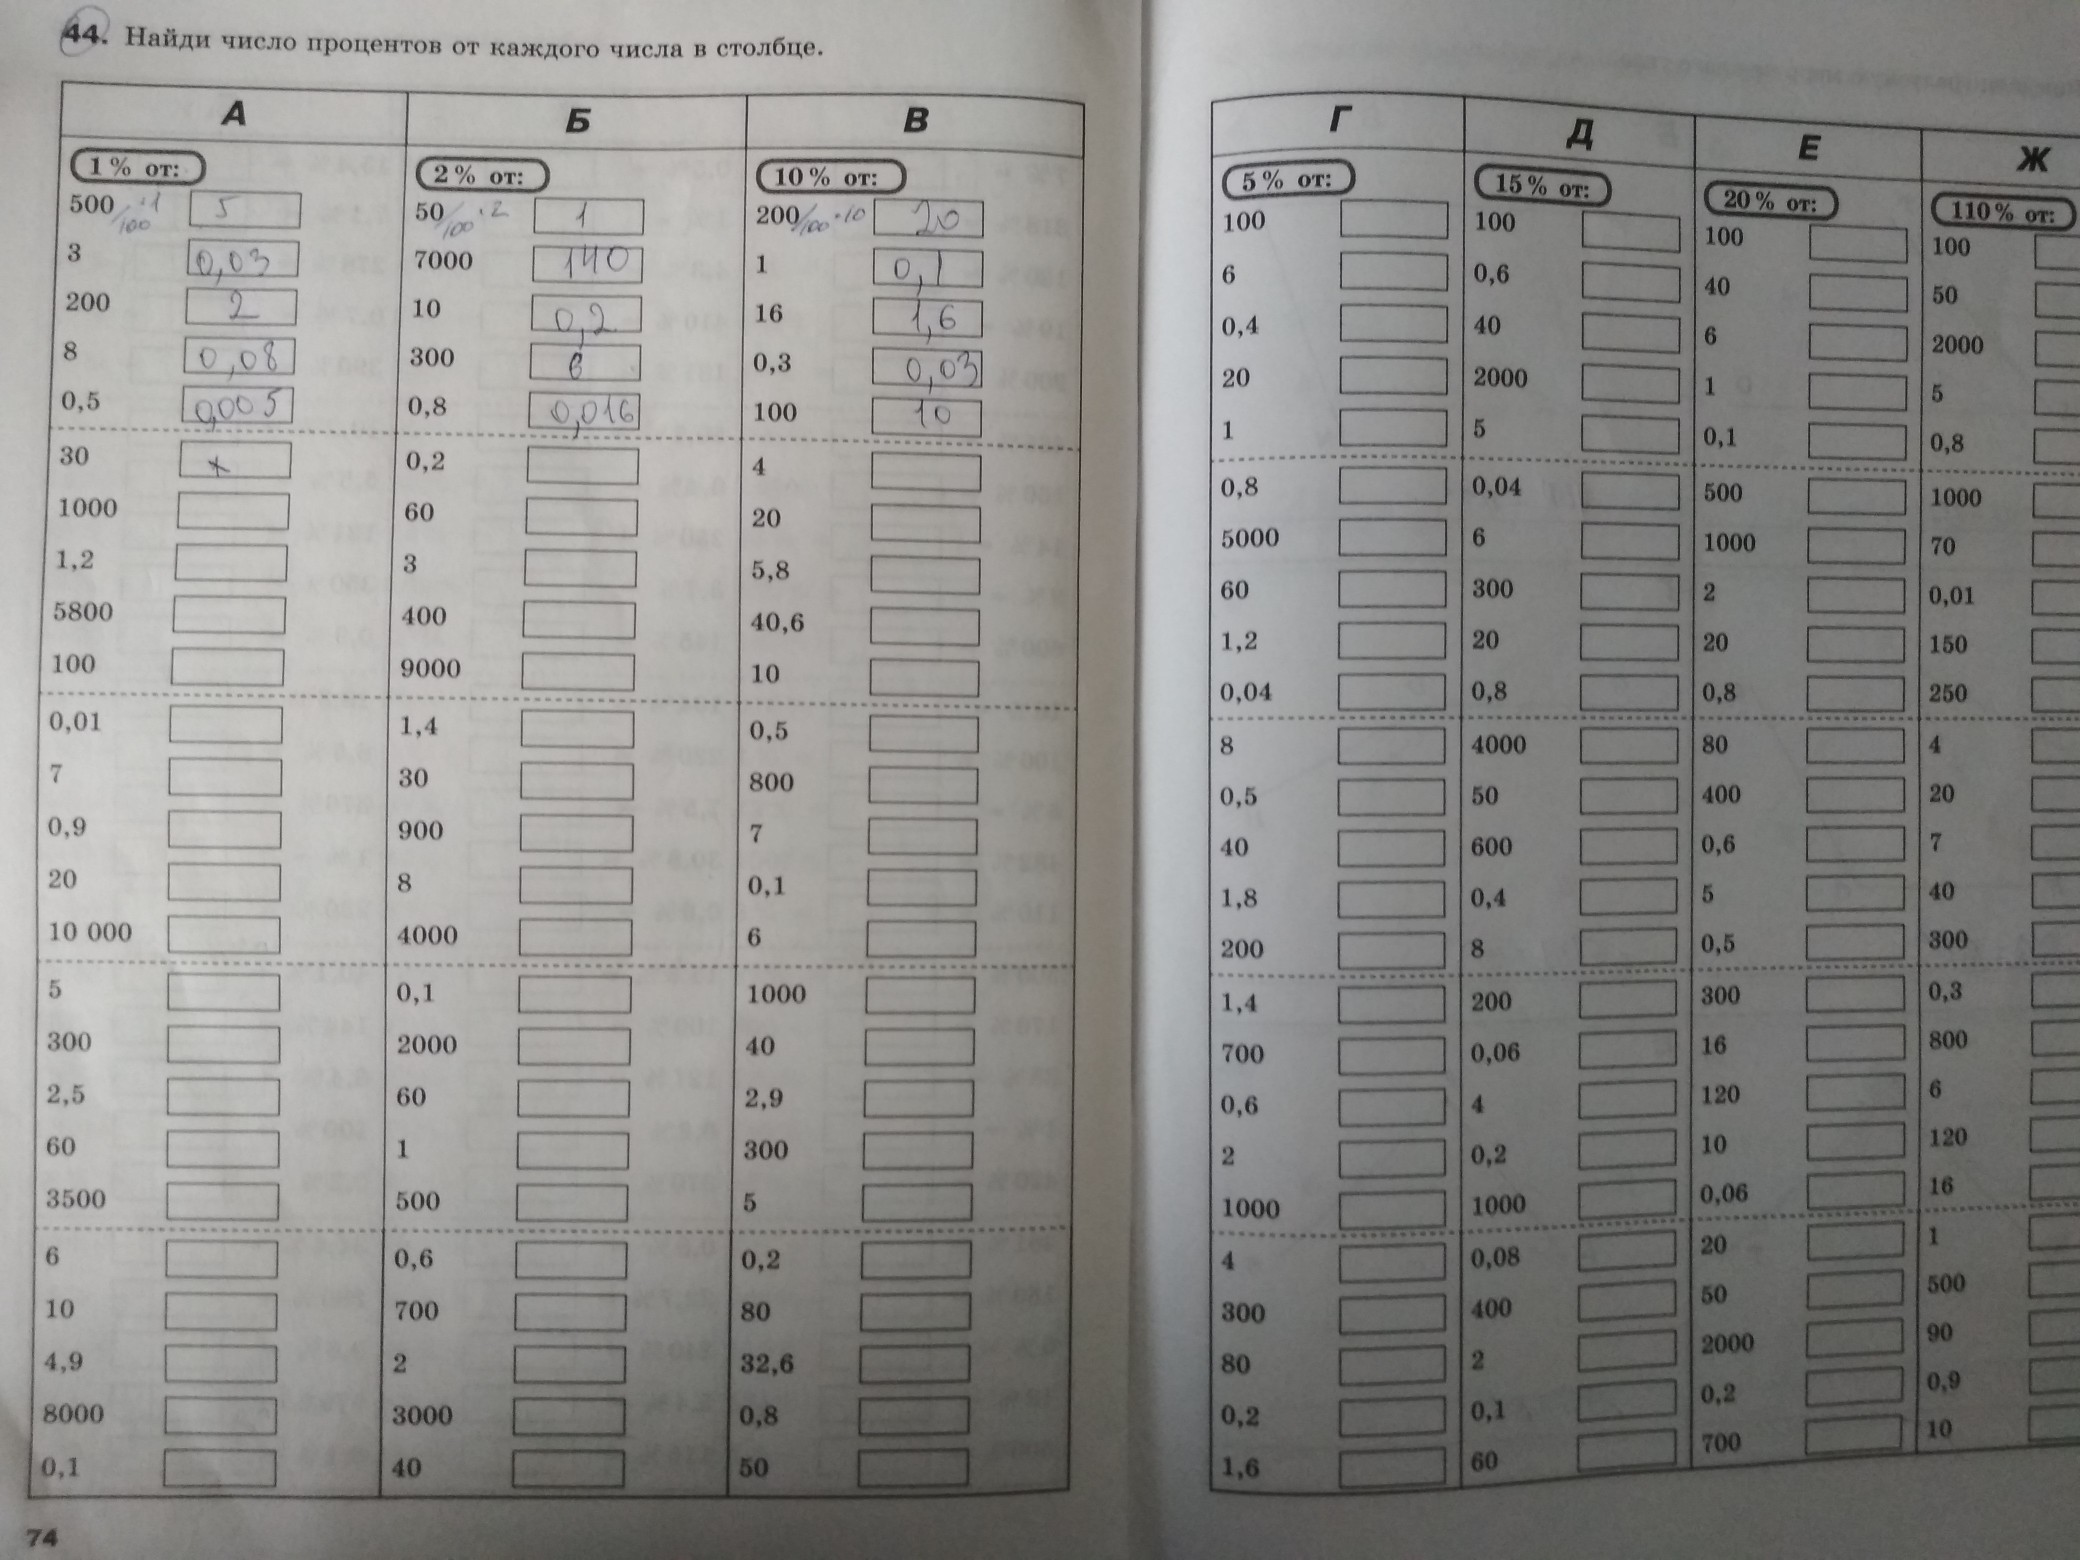 44. Найди число процентов от каждого числа в столбце.
А Б В
1 % от: 2 % от: 10 % от:
500/100 ·1 5 50/100 ·2 1 200/100 ·10 20
3 0,03 7000 140 1 0,1
200 2 10 0,2 16 1,6
8 0,08 300 6 0,3 0,03
0,5 0,005 0,8 0,016 100 10
30 0,2 4
1000 60 20
1,2 3 5,8
5800 400 40,6
100 9000 10
0,01 1,4 0,5
7 30 800
0,9 900 7
20 8 0,1
10 000 4000 6
5 0,1 1000
300 2000 40
2,5 60 2,9
60 1 300
3500 500 5
6 0,6 0,2
10 700 80
4,9 2 32,6
8000 3000 0,8
0,1 40 50
74
Г Д Е Ж
5 % от: 15 % от: 20 % от: 110 % от:
100 100 100 100
6 0,6 40 50
0,4 40 6 2000
20 2000 1 5
1 5 0,1 0,8
0,8 0,04 500 1000
5000 6 1000 70
60 300 2 0,01
1,2 20 20 150
0,04 0,8 0,8 250
8 4000 80 4
0,5 50 400 20
40 600 0,6 7
1,8 0,4 5 40
200 8 0,5 300
1,4 200 300 0,3
700 0,06 16 800
0,6 4 120 6
2 0,2 10 120
1000 1000 0,06 16
4 0,08 20 1
300 400 50 500
80 2 2000 90
0,2 0,1 0,2 0,9
1,6 60 700 10